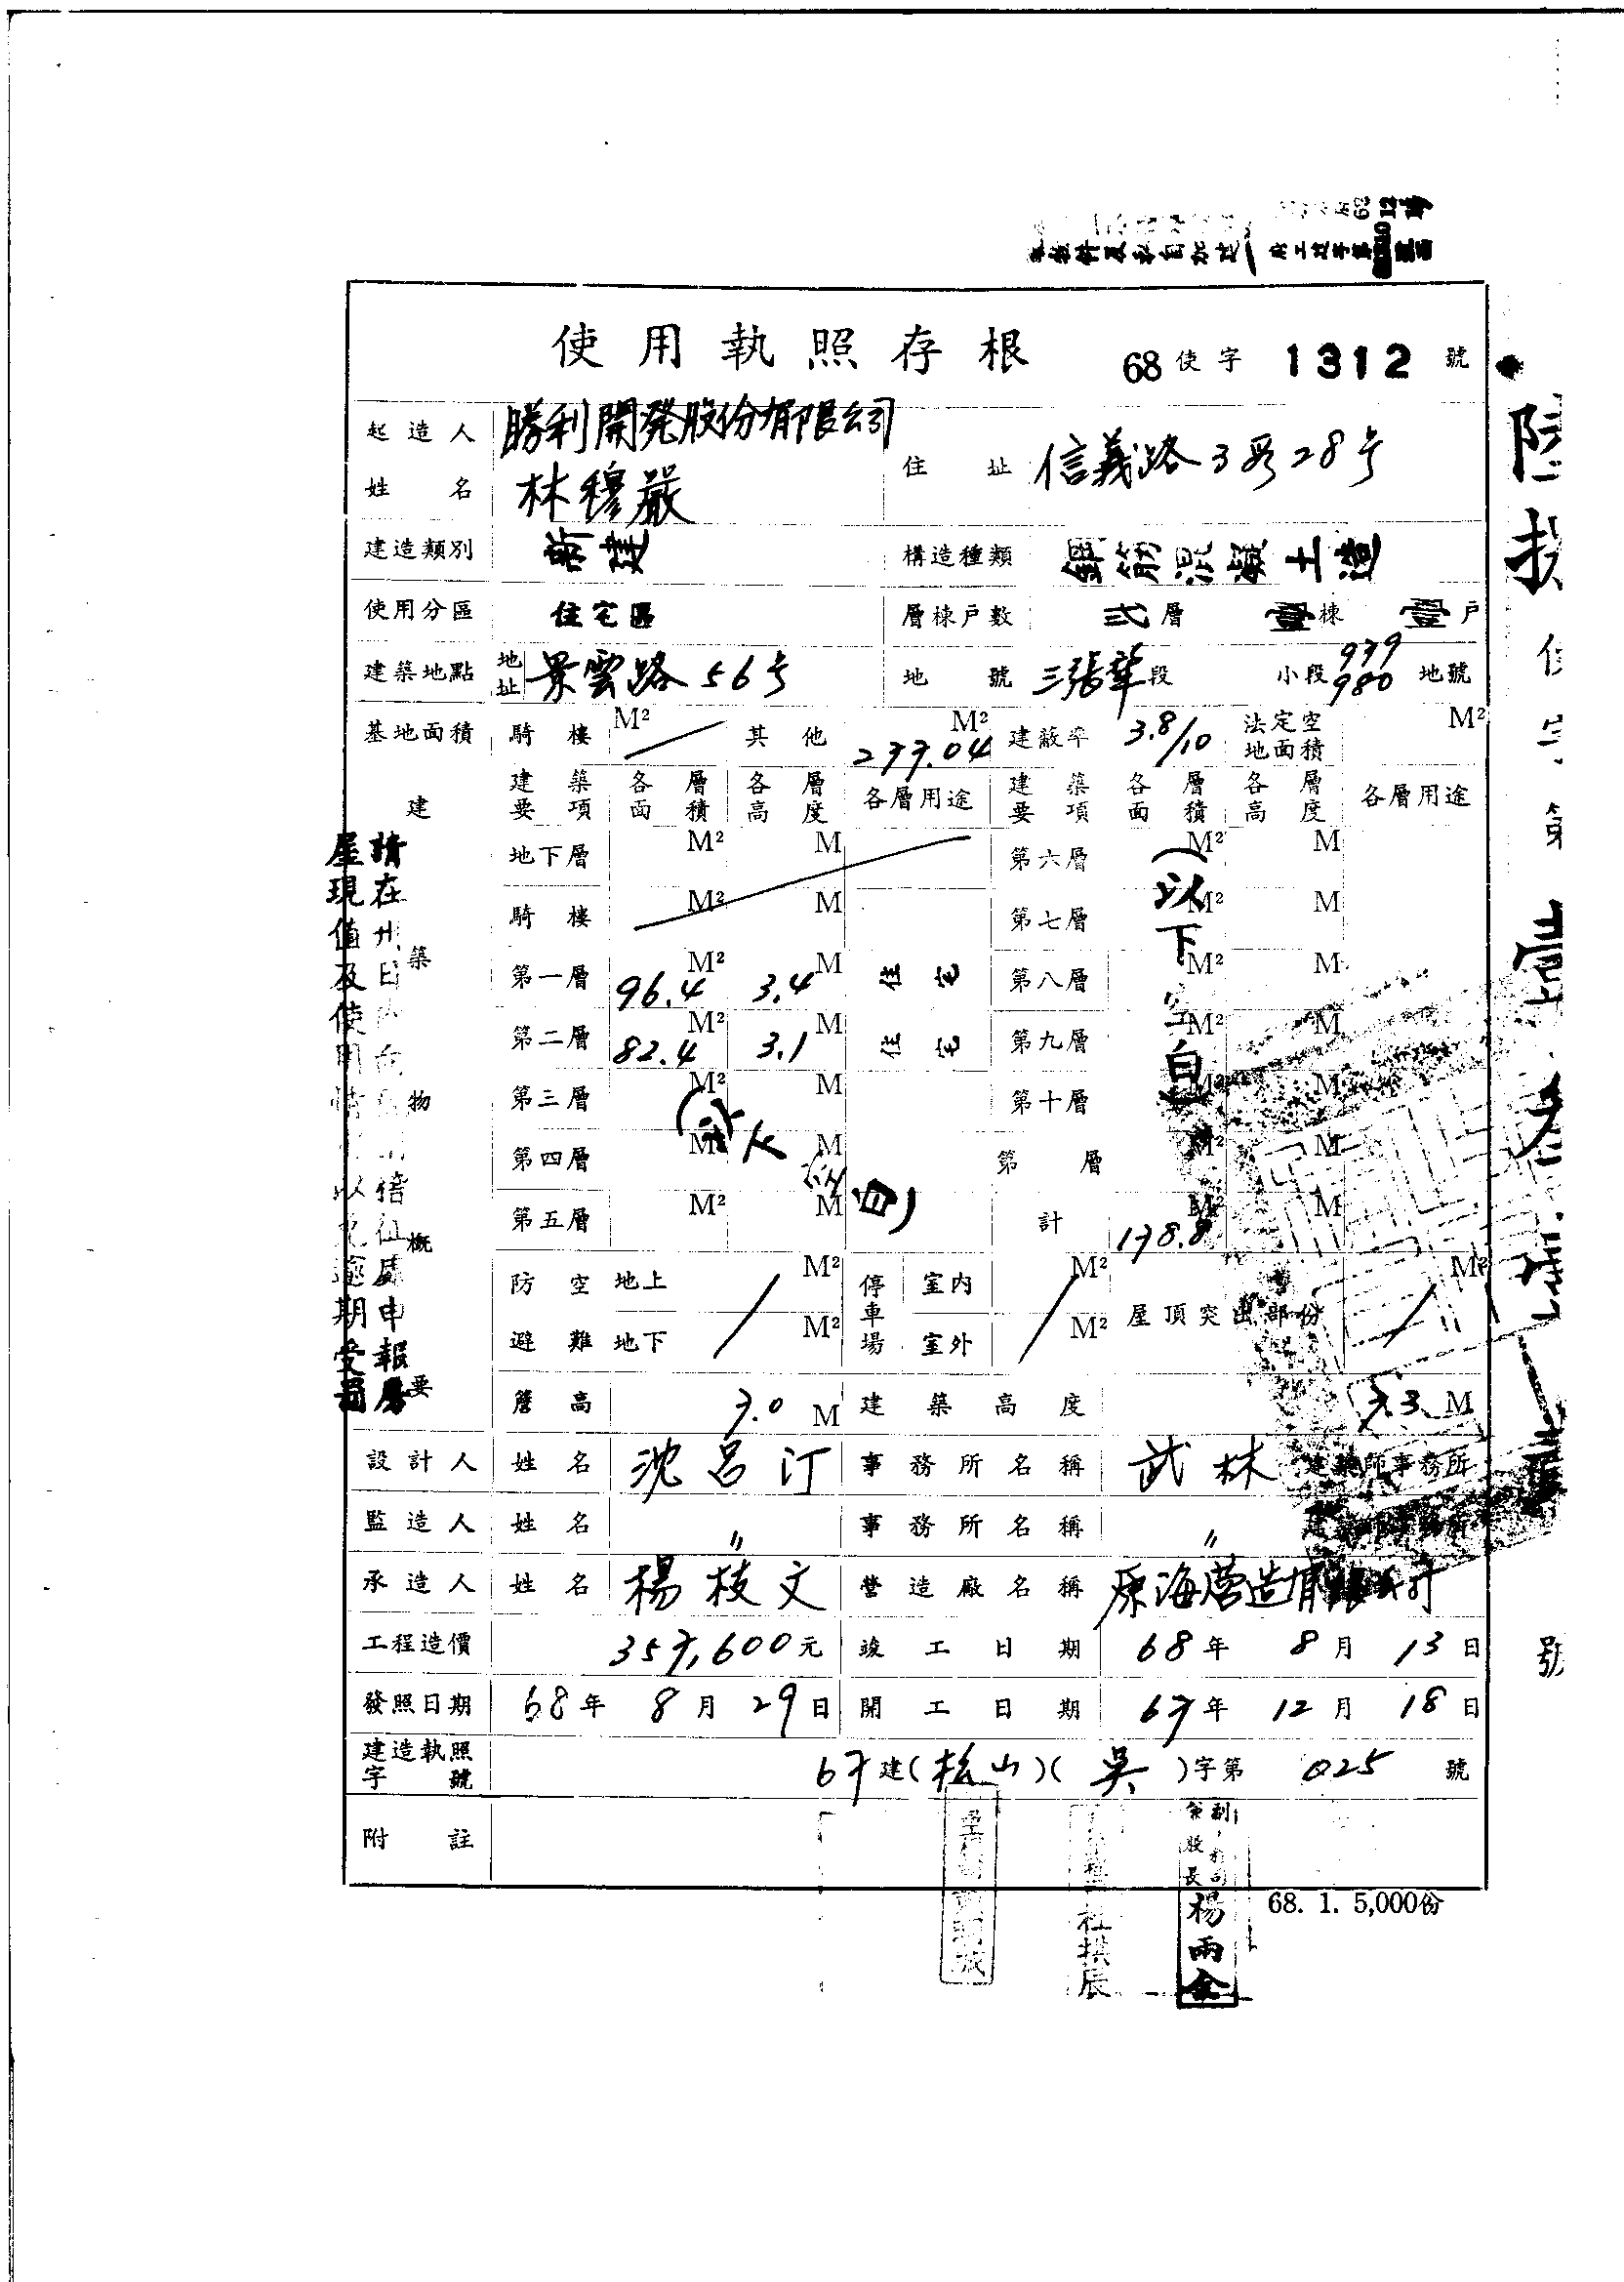 使用執照存根 68使字 1312 號
起造人姓名 勝利開発股份有限公司 林穆嚴 住址 信義路3段28号
建造類別 新建 構造種類 鋼筋混凝土造
使用分區 住宅區 層棟戶數 弍層 壹棟 壹戶
建築地點 地址 景雲路56号 地號 三張犂段 小段 979 980 地號
基地面積 騎樓 M² 其他 277.04 M² 建蔽率 3.8/10 法定空地面積 M²
建築物概要
建築要項 各層面積 各層高度 各層用途 建築要項 各層面積 各層高度 各層用途
地下層 M² M 第六層 M² M
騎樓 M² M 第七層 M² M
第一層 96.4 M² 3.4 M 住宅 第八層 M² M
第二層 82.4 M² 3.1 M 住宅 第九層 M² M
第三層 M² M 第十層 M² M
第四層 M² M 第 層 M² M
第五層 M² M 計 178.8 M² M
(以下空白)
(以下空白)
防空避難 地上 M² 地下 M² 停車場 室內 M² 室外 M² 屋頂突出部份 M²
簷高 7.0 M 建築高度 7.3 M
設計人 姓名 沈呂汀 事務所名稱 武林 建築師事務所
監造人 姓名 〃 事務所名稱 〃 建築師事務所
承造人 姓名 楊枝文 營造廠名稱 原海营造有限公司
工程造價 357,600元 竣工日期 68年 8月 13日
發照日期 68年 8月 29日 開工日期 67年 12月 18日
建造執照字號 67建(松山)(吳)字第 025 號
附註
68. 1. 5,000份
股長 楊雨金